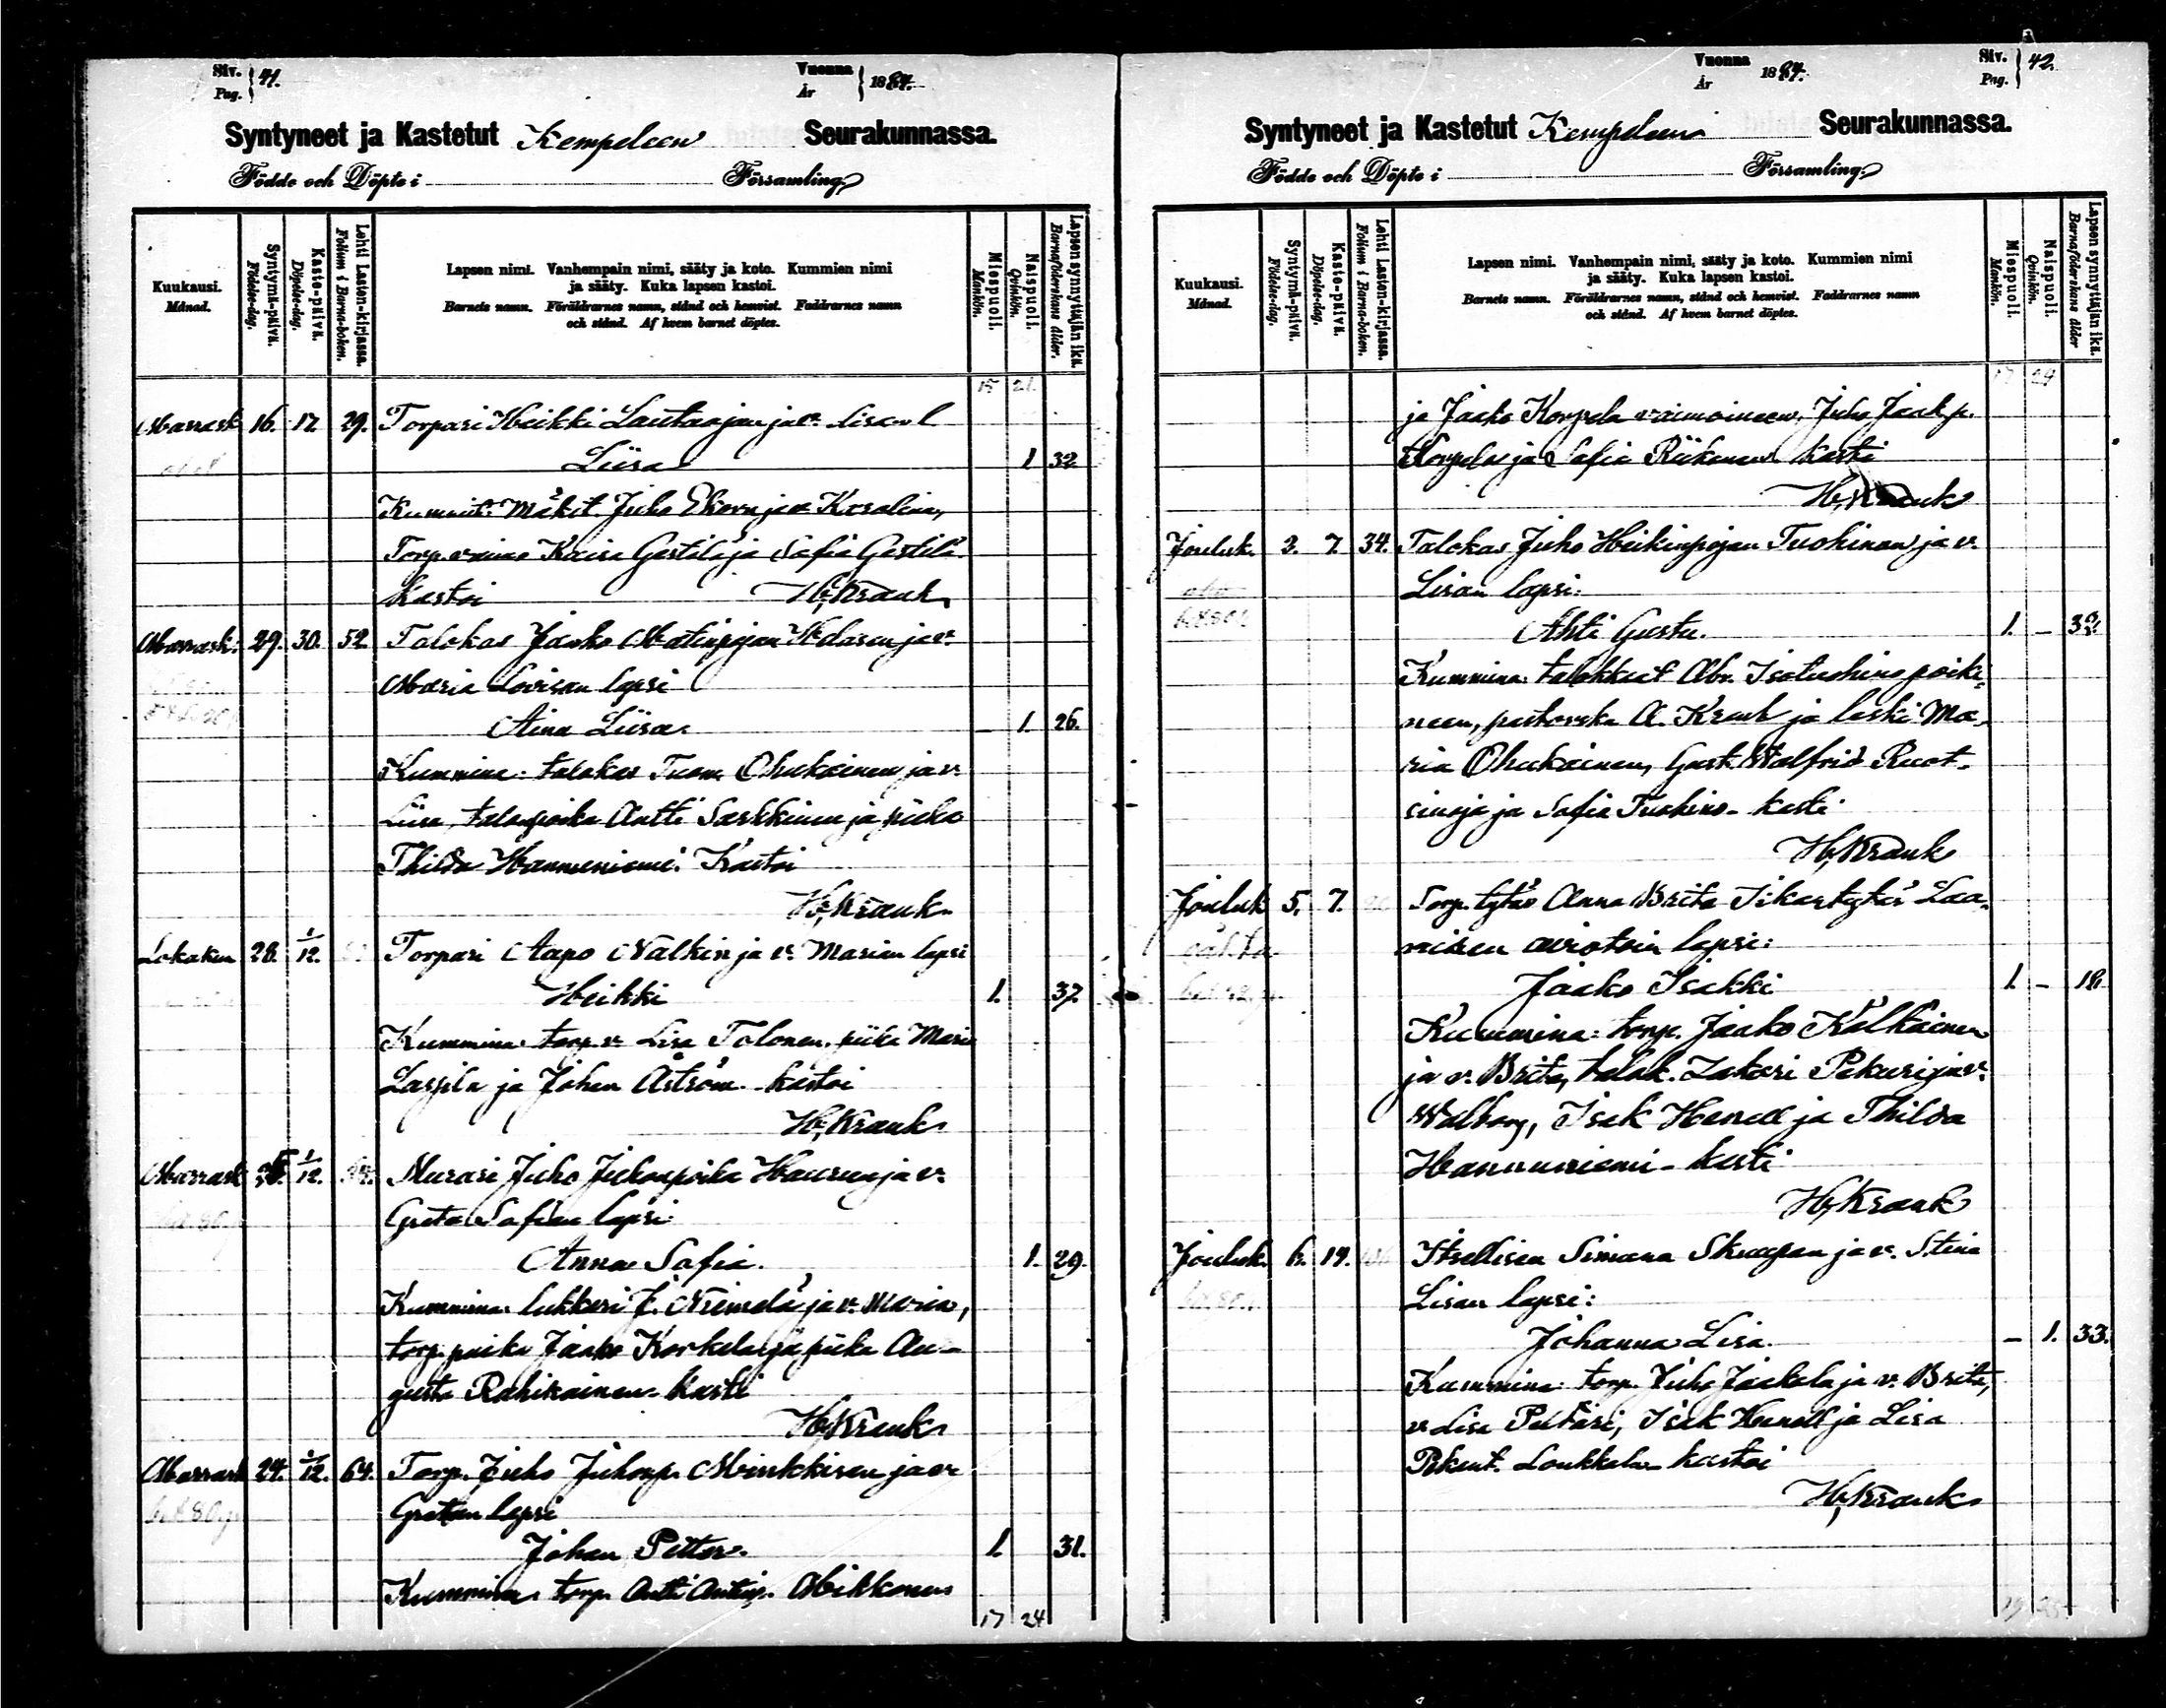 Siv. Pag. } 41.
Vuonna År } 1884.
Syntyneet ja Kastetut Kempeleen Seurakunnassa.
Födde och Döpte i Församling
Kuukausi. Månad.
Syntymä-päivä. Födelse-dag.
Kaste-päivä. Döpelse-dag.
Lehti Lasten-kirjassa. Folium i Barna-boken.
Lapsen nimi. Vanhempain nimi, sääty ja koto. Kummien nimi
ja sääty. Kuka lapsen kastoi.
Barnets namn. Föräldrarnes namn, stånd och hemvist. Faddrarnes namn
och stånd. Af hvem barnet döptes.
Miespuoli. Mankön.
Naispuoli. Qvinkön.
Lapsen synnyttäjän ikä. Barnaföderskans ålder.
15 21
Marrask 16. 17. 29. Torpari Heikki Lautaojan ja v. Lisan l
Liisa 1 32
Kummit: Mäkit. Juho Ekorn ja v Karolina,
Torp. vaimo Kaisa Gestilä ja Safia Gestilä.
Kastoi Hj. Krank
Marrask. 29. 30. 52. Talokas Jaako Matinpojan Holasen ja v.
Maria Lovisan lapsi
Aina Liisa. 1. 26.
Kummina: talokas Tuom. Ohukainen ja v.
Liisa, talonpoika Antti Sarkkinen ja piika
Thilda Hannuniemi. Kastoi
Hj. Krank
Lokakuu 28. 1/12. Torpari Aapo Nalkin ja v. Marian lapsi
Heikki 1. 37.
Kummina: torp. v. Lisa Tolonen, piika Maria
Lassila ja Johan Åström. kastoi
Hj. Krank
Marrask 1/12. Murari Juho Juhonpoika Haurun ja v.
Greta Safian lapsi:
Anna Safia. 1. 29.
Kummina: lukkari J. Niemelä ja v. Maria,
torp. poika Jaako Korkela ja piika Au-
gusta Rahikainen. kasti
Hj. Krank
Marrask 24. 1/12. 64. Torp. Juho Juhonp. Minkkisen ja v
Gretan lapsi
Johan Petter. 1. 31.
Kummina: torp. Antti Antinp. Mikkonen
17 24
Vuonna År 1884.
Siv. Pag. } 42.
Syntyneet ja Kastetut Kempeleen Seurakunnassa.
Födde och Döpte i Församling
Kuukausi. Månad.
Syntymä-päivä. Födelse-dag.
Kaste-päivä. Döpelse-dag.
Lehti Lasten-kirjassa. Folium i Barna-boken.
Lapsen nimi. Vanhempain nimi, sääty ja koto. Kummien nimi
ja sääty. Kuka lapsen kastoi.
Barnets namn. Föräldrarnes namn, stånd och hemvist. Faddrarnes namn
och stånd. Af hvem barnet döptes.
Miespuoli. Mankön.
Naispuoli. Qvinkön.
Lapsen synnyttäjän ikä. Barnaföderskans ålder
17 24
ja Jaako Korpela vaimoineen, Juho Jaakp.
Korpela ja Safia Riikonen kasti
Hj. Krank
Jouluk. 3. 7. 34. Talokas Juho Heikinpojan Tuohinan ja v.
Lisan lapsi:
Ahti Gustu. 1. –
Kummina: talokkaat Abr. Isotuohino poiki-
neen, pastorska A. Krank ja leski Ma-
ria Ohukainen, Gust. Walfrid Ruot-
sinoja ja Safia Tuohino. kasti
Hj. Krank
Jouluk 5. 7. Torp. tytär Anna Brita Iikantytär Laa-
misen aviotoin lapsi:
Jaako Isakki 1. – 18
Kummina: torp. Jaako Kälkäinen
ja v. Brita, talok. Zakari Pekuri ja v.
Walborg, Isak Hanell ja Thilda
Hannuniemi. kasti
Hj. Krank
Jouluk. 6. 14. Itsellisen Simuna Skaapan ja v. Stina
Lisan lapsi:
Johanna Lisa. – 1. 33.
Kummina: torp. Juho Jaakola ja v. Brita,
v. Lisa Pütäri, Isak Hanell ja Lisa
Pekunt. Loukkola. kastoi
Hj. Krank